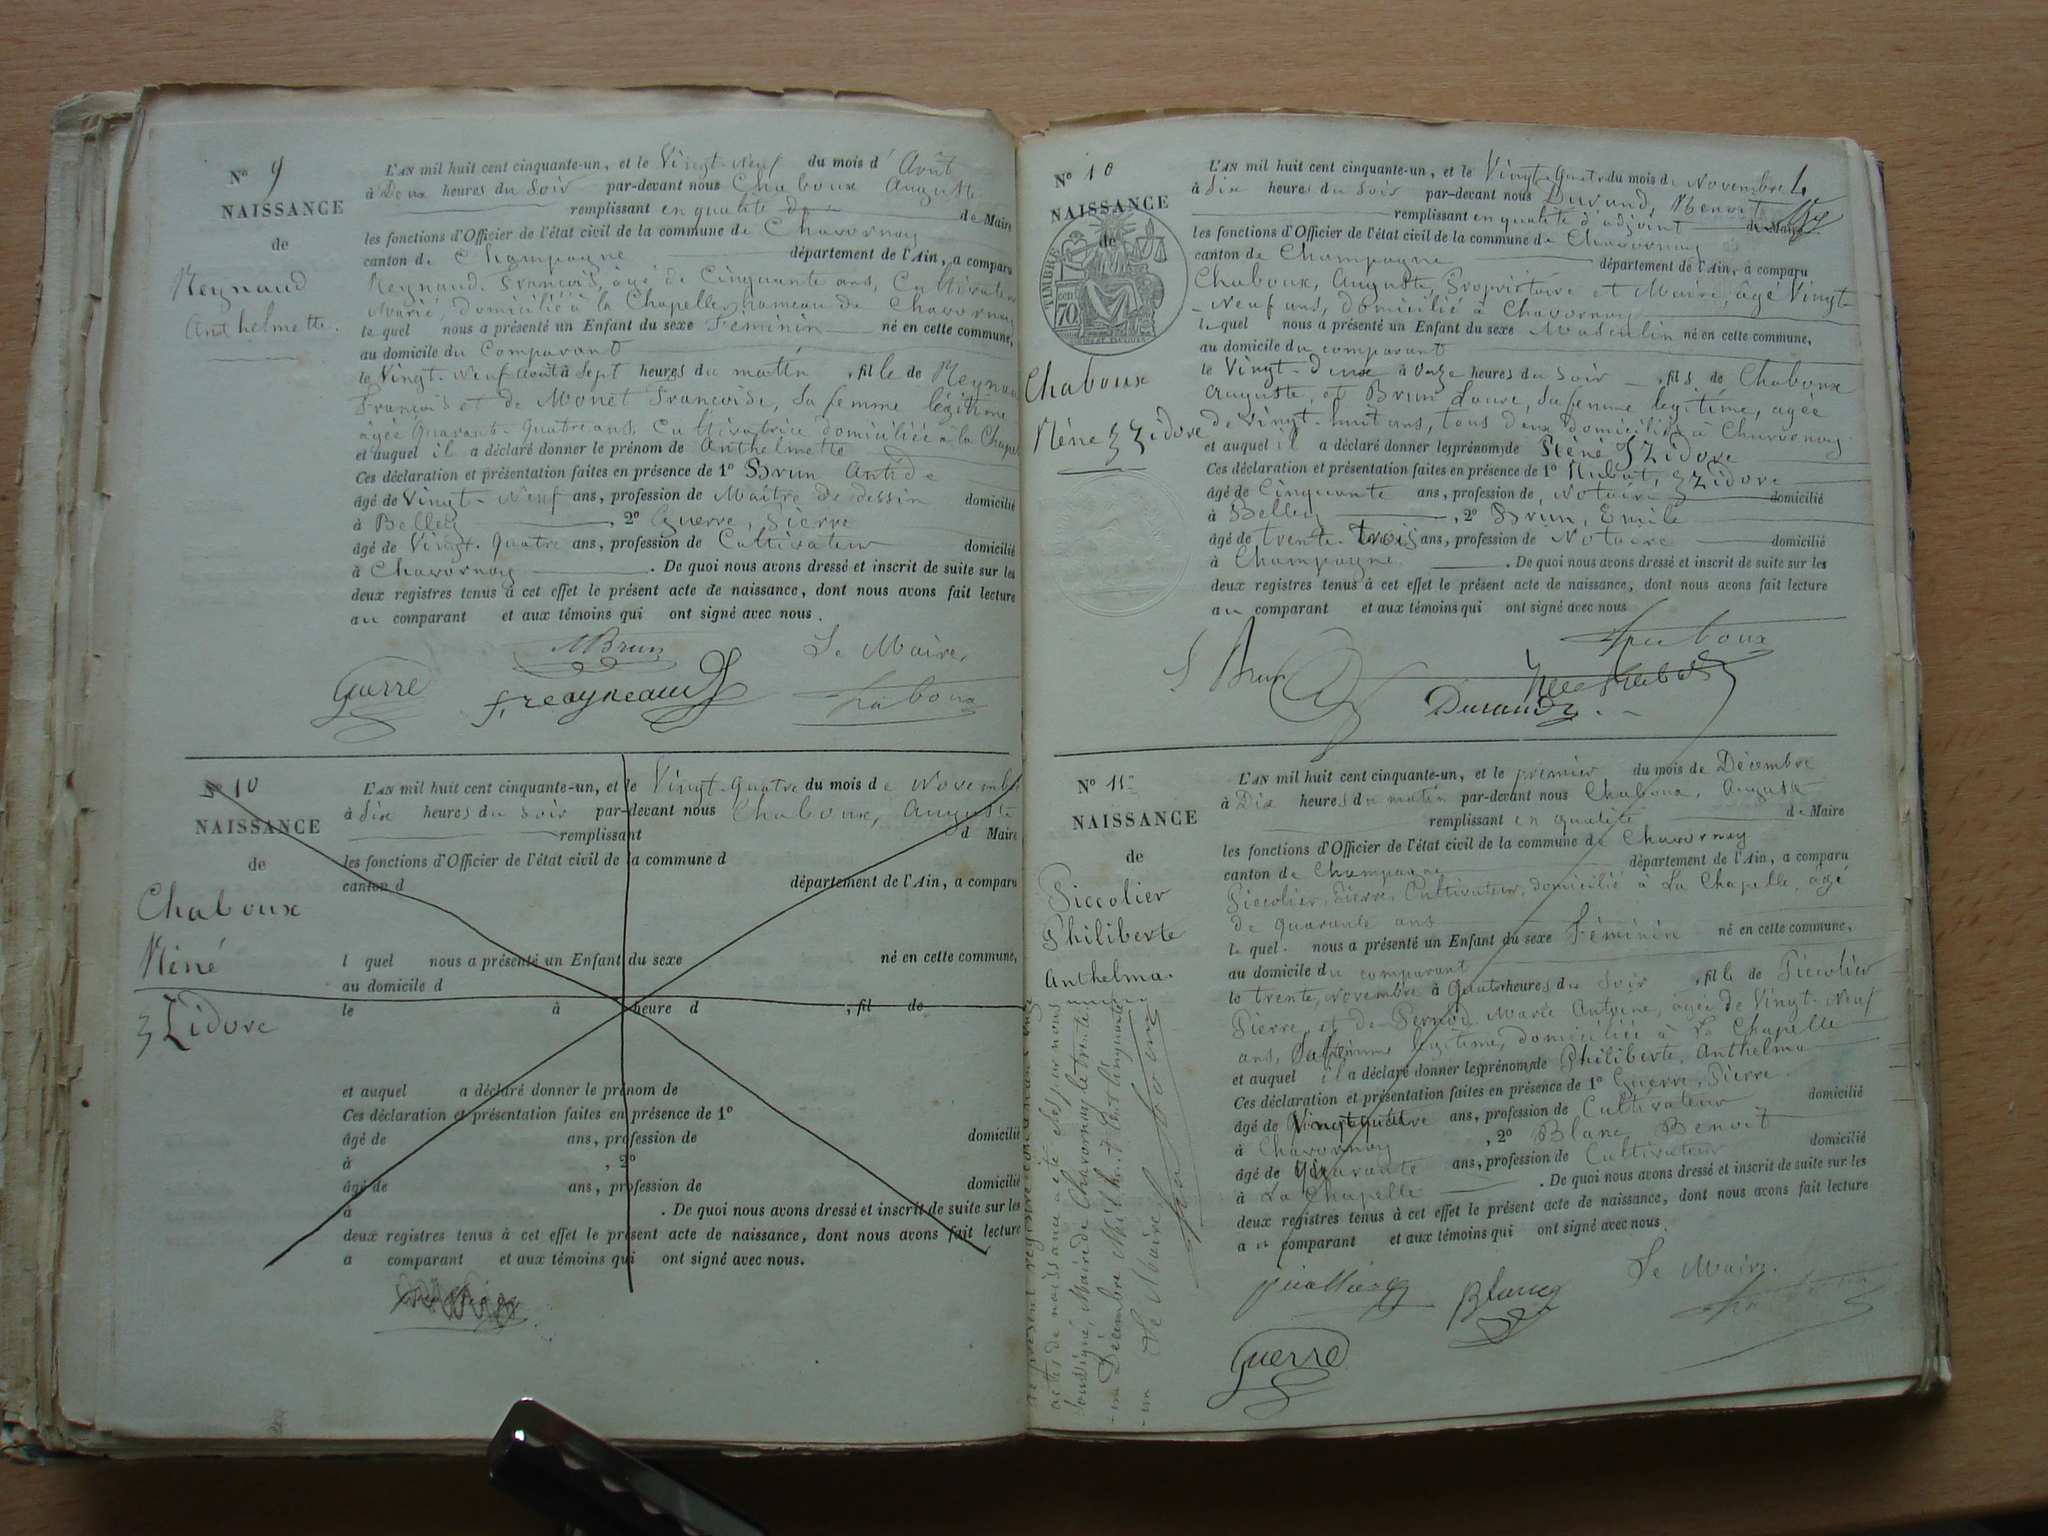 N° 9
NAISSANCE
de
Reynaud
Anthelmette.
L'AN mil huit cent cinquante-un, et le Vingt-Neuf du mois d'Août
à Deux heures du Soir par-devant nous Chaboux Auguste
remplissant en qualité de Maire
les fonctions d'Officier de l'état civil de la commune de Chavornay
canton de Champagne département de l'Ain, a comparu
Reynaud, François, âgé de Cinquante ans, Cultivateur
Marié, domicilié à la Chapelle, hameau de Chavornay
le quel nous a présenté un Enfant du sexe Féminin né en cette commune,
au domicile du Comparant
le Vingt-Neuf août à Sept heures du matin, fille de Reynaud
François et de Monet Françoise, Sa femme légitime
âgée Quarante-Quatre ans, Cultivatrice domiciliée à la Chapel
et auquel il a déclaré donner le prénom de Anthelmette
Ces déclaration et présentation faites en présence de 1° Brun Antide
âgé de Vingt-Neuf ans, profession de Maître de dessin domicilié
à Belley, 2° Guerre, Pierre
âgé de Vingt-Quatre ans, profession de Cultivateur domicilié
à Chavornay. De quoi nous avons dressé et inscrit de suite sur les
deux registres tenus à cet effet le présent acte de naissance, dont nous avons fait lecture
au comparant et aux témoins qui ont signé avec nous.
Brun Le Maire,
Guerre f. reayneaud Chaboux
N° 10
NAISSANCE
de
Chaboux
Réné
Izidore
L'AN mil huit cent cinquante-un, et le Vingt-Quatre du mois de Novembre
à Six heures du Soir par-devant nous Chaboux, Auguste
remplissant d Maire
les fonctions d'Officier de l'état civil de la commune d
canton d département de l'Ain, a comparu
l quel nous a présenté un Enfant du sexe né en cette commune,
au domicile d
le à heure d , fil de
et auquel a déclaré donner le prénom de
Ces déclaration et présentation faites en présence de 1°
âgé de ans, profession de domicilié
à , 2°
âgé de ans, profession de domicilié
à . De quoi nous avons dressé et inscrit de suite sur les
deux registres tenus à cet effet le présent acte de naissance, dont nous avons fait lecture
a comparant et aux témoins qui ont signé avec nous.
N° 10
NAISSANCE
de
TIMBRE
70
Chaboux
Réné Izidore
L'AN mil huit cent cinquante-un, et le Vingt-Quatre du mois de Novembre
à Six heures du Soir par-devant nous Durand, Benoit
remplissant en qualité d'adjoint de Maire
les fonctions d'Officier de l'état civil de la commune de Chavornay
canton de Champagne département de l'Ain, a comparu
Chaboux, Auguste, Propriétaire et Maire, âgé Vingt-
-Neuf ans, domicilié à Chavornay
le quel nous a présenté un Enfant du sexe Masculin né en cette commune,
au domicile du comparant
le Vingt-Deux à Onze heures du Soir, fils de Chaboux
Auguste, et Brun Laure, Sa femme légitime, âgée
de Vingt-huit ans, tous deux domiciliés à Chavornay.
et auquel il a déclaré donner les prénoms de Réné Izidore
Ces déclaration et présentation faites en présence de 1° Hubat, Izidore
âgé de Cinquante ans, profession de Notaire domicilié
à Belley, 2° Brun, Emile
âgé de trente-trois ans, profession de Notaire domicilié
à Champagne. De quoi nous avons dressé et inscrit de suite sur les
deux registres tenus à cet effet le présent acte de naissance, dont nous avons fait lecture
au comparant et aux témoins qui ont signé avec nous
Chaboux
Brun
Durand
N° 11
NAISSANCE
de
Piccolier
Philiberte
Anthelma.
L'AN mil huit cent cinquante-un, et le premier du mois de Décembre
à Dix heures du matin par-devant nous Chaboux, Auguste
remplissant en qualité de Maire
les fonctions d'Officier de l'état civil de la commune de Chavornay
canton de Champagne département de l'Ain, a comparu
Piccolier, Pierre, Cultivateur, domicilié à La Chapelle, âgé
de quarante ans
le quel nous a présenté un Enfant du sexe Féminin né en cette commune,
au domicile du comparant
le trente, Novembre à quatre heures du Soir, fille de Piccolier
Pierre, et de Pernod Marie Antoine, âgée de Vingt-Neuf
ans, Sa femme légitime, domiciliée à La Chapelle
et auquel il a déclaré donner les prénoms de Philiberte, Anthelma
Ces déclaration et présentation faites en présence de 1° Guerre, Pierre
âgé de Vingtquatre ans, profession de Cultivateur domicilié
à Chavornay, 2° Blanc Benoit
âgé de Quarante ans, profession de Cultivateur domicilié
à La Chapelle. De quoi nous avons dressé et inscrit de suite sur les
deux registres tenus à cet effet le présent acte de naissance, dont nous avons fait lecture
au comparant et aux témoins qui ont signé avec nous.
Blanc Le Maire.
Guerre
Le présent registre contenant onze
actes de naissance a été clos par nous
soussigné, Maire de Chavornay, le trente-
-un Décembre Mil huit Cent Cinquante-
-un Le Maire, Chaboux